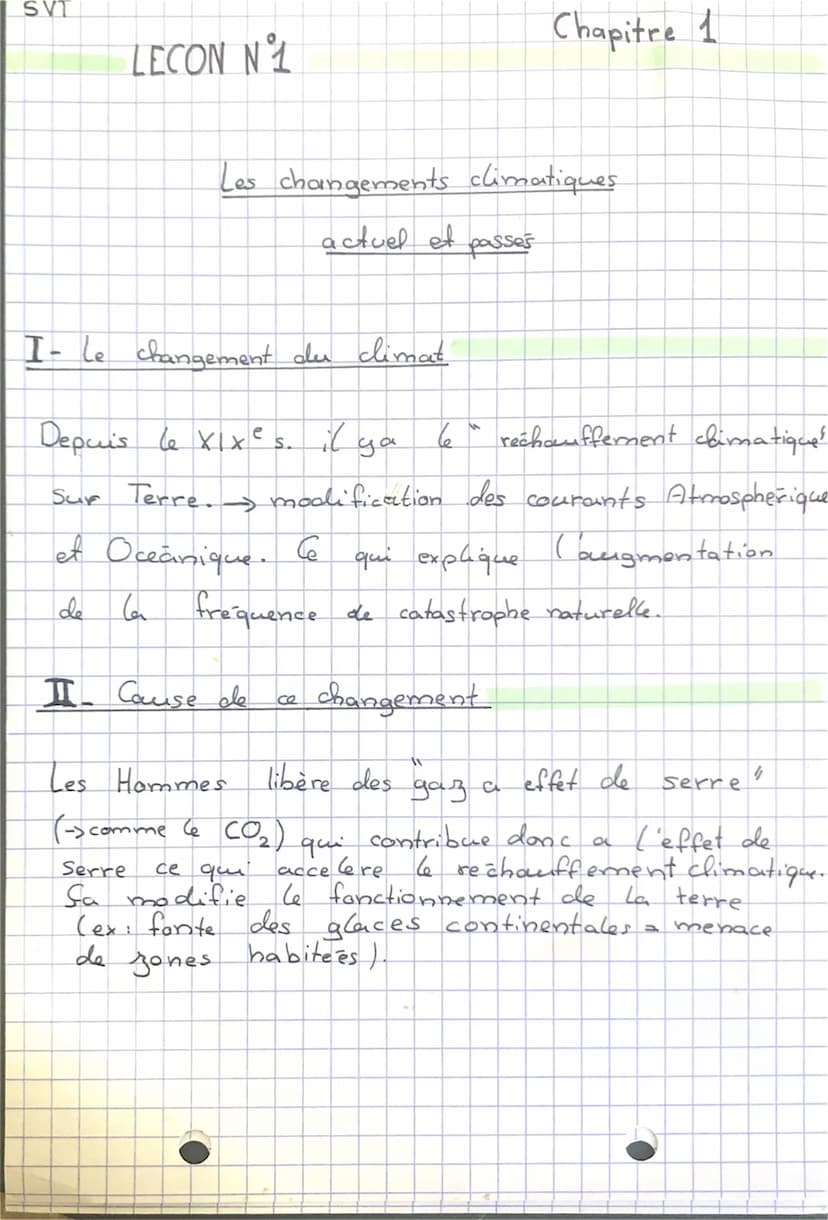 SVT
Chapitre 1
LECON N°1
Les changements climatiques
actuel et passés
I- Le changement du climat
Depuis le XIXe s. il ya le "réchauffement climatique"
sur Terre. → modification des courants Atmosphérique
et Océanique. Ce qui explique l'augmentation
de la fréquence de catastrophe naturelle.
II- Cause de ce changement
Les Hommes libère des "gaz a effet de serre"
(→comme le CO2) qui contribue donc a l'effet de
serre ce qui accelère le réchauffement climatique.
Sa modifie le fonctionnement de la terre
(ex: fonte des glaces continentales = menace
de zones habitées).